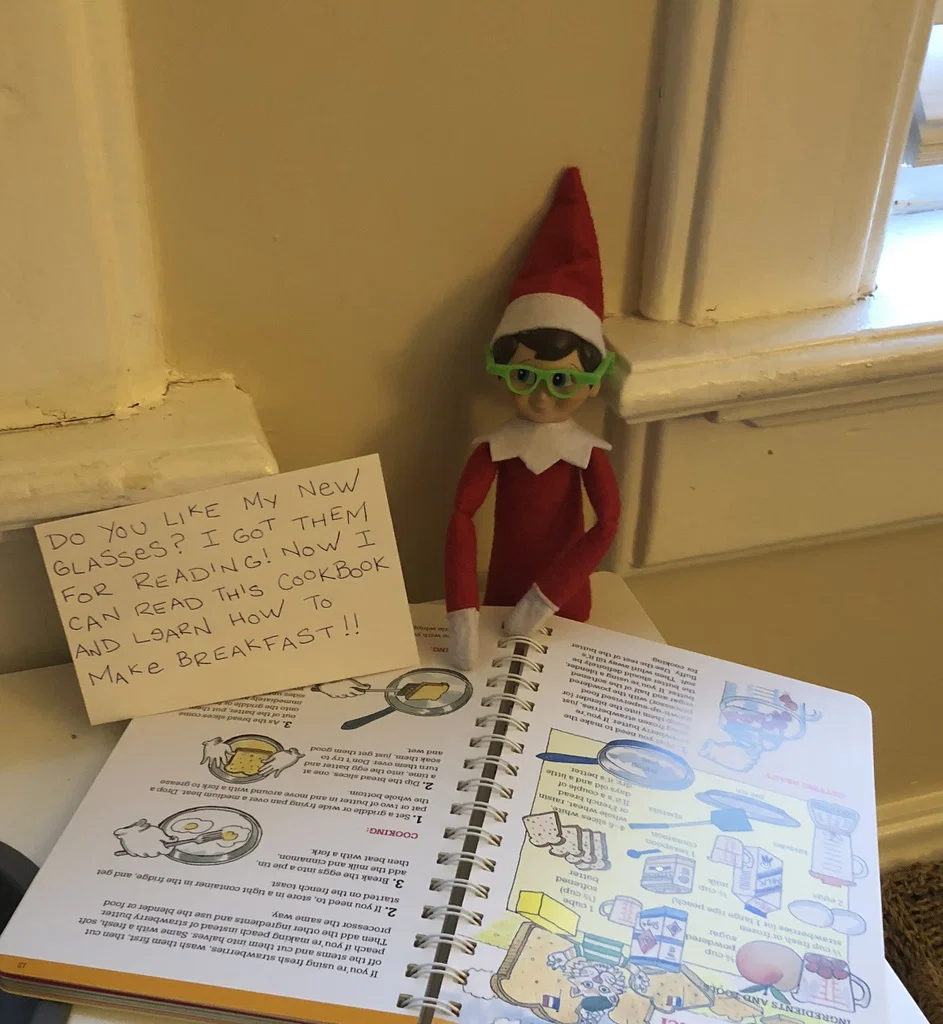 DO YOU LIKE MY NEW
GLASSES? I GOT THEM
FOR READING! NOW I
CAN READ THIS COOKBOOK
AND LEARN HOW TO
MAKE BREAKFAST!!
INGREDIENTS AND TOOLS
½ cup fresh or frozen
strawberries
(or 1 large ripe peach)
powdered
sugar
1 cube
(½ cup)
softened
2 eggs
½ cup milk
MILK
1 teaspoon
cinnamon
4-6 slices white,
whole wheat, raisin
or French bread.
If it's a couple of
days old and a little
dry, it's better
blender
spatula
pie tin
GETTING READY:
If you're using fresh strawberries, wash them first, then cut
off the stems and cut them into halves. Same with a fresh, soft
peach if you're making peach butter instead of strawberry butter.
Then add the other ingredients and use the blender or food
processor the same way.
2. If you need to, store in a tight container in the fridge, and get
started on the french toast.
3. Break the eggs into a pie tin,
add the milk and cinnamon,
then beat with a fork.
COOKING:
1. Set a griddle or wide frying pan over a medium heat. Drop a
pat or two of butter in and move around with a fork to grease
the whole bottom.
2. Dip the bread slices, one at
a time, into the egg batter and
turn them over. Don't try to
soak them, just get them good
and wet.
3. As the bread slices come
out of the batter, put them
onto the griddle or
immediately
13